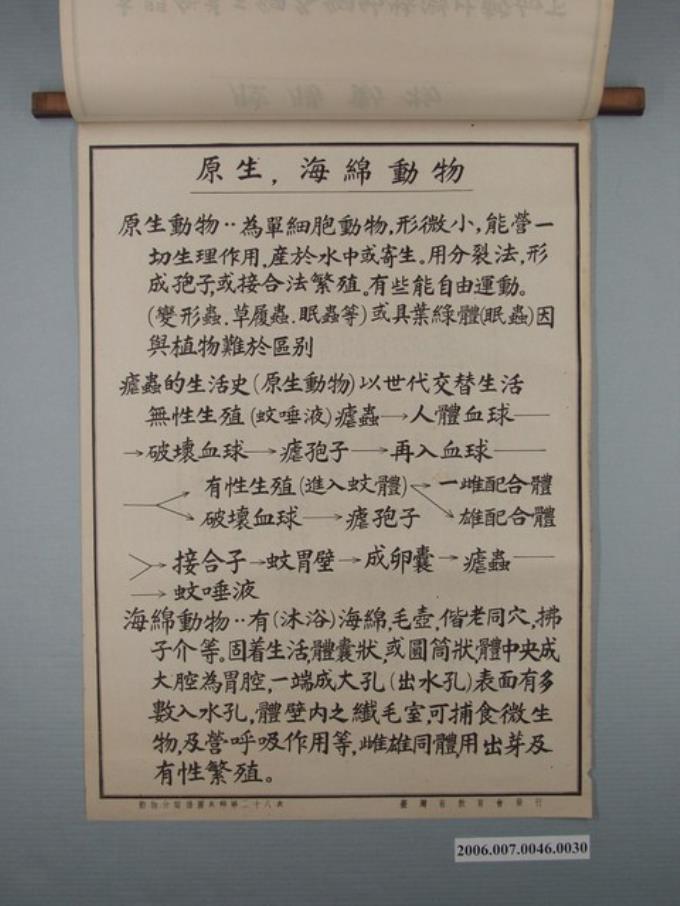 原生，海綿動物
原生動物‥為單細胞動物，形微小，能營一
切生理作用，産於水中或寄生。用分裂法，形
成孢子，或接合法繁殖。有些能自由運動。
(變形蟲．草履蟲．眠蟲等) 或具葉綠體(眠蟲)因
與植物難於區別
瘧蟲的生活史(原生動物)以世代交替生活
無性生殖(蚊唾液)瘧蟲→人體血球—
→破壞血球→瘧孢子→再入血球—
有性生殖(進入蚊體)→一雌配合體
破壞血球→瘧孢子 雄配合體
→接合子→蚊胃壁→成卵囊→瘧蟲—
→蚊唾液
海綿動物‥有(沐浴)海綿，毛壺，偕老同穴，拂
子介等。固着生活，體囊狀，或圓筒狀，體中央成
大腔為胃腔，一端成大孔(出水孔)表面有多
數入水孔，體壁内之纖毛室，可捕食微生
物，及營呼吸作用等，雌雄同體，用出芽及
有性繁殖。
臺灣省教育會發行
2006.007.0046.0030